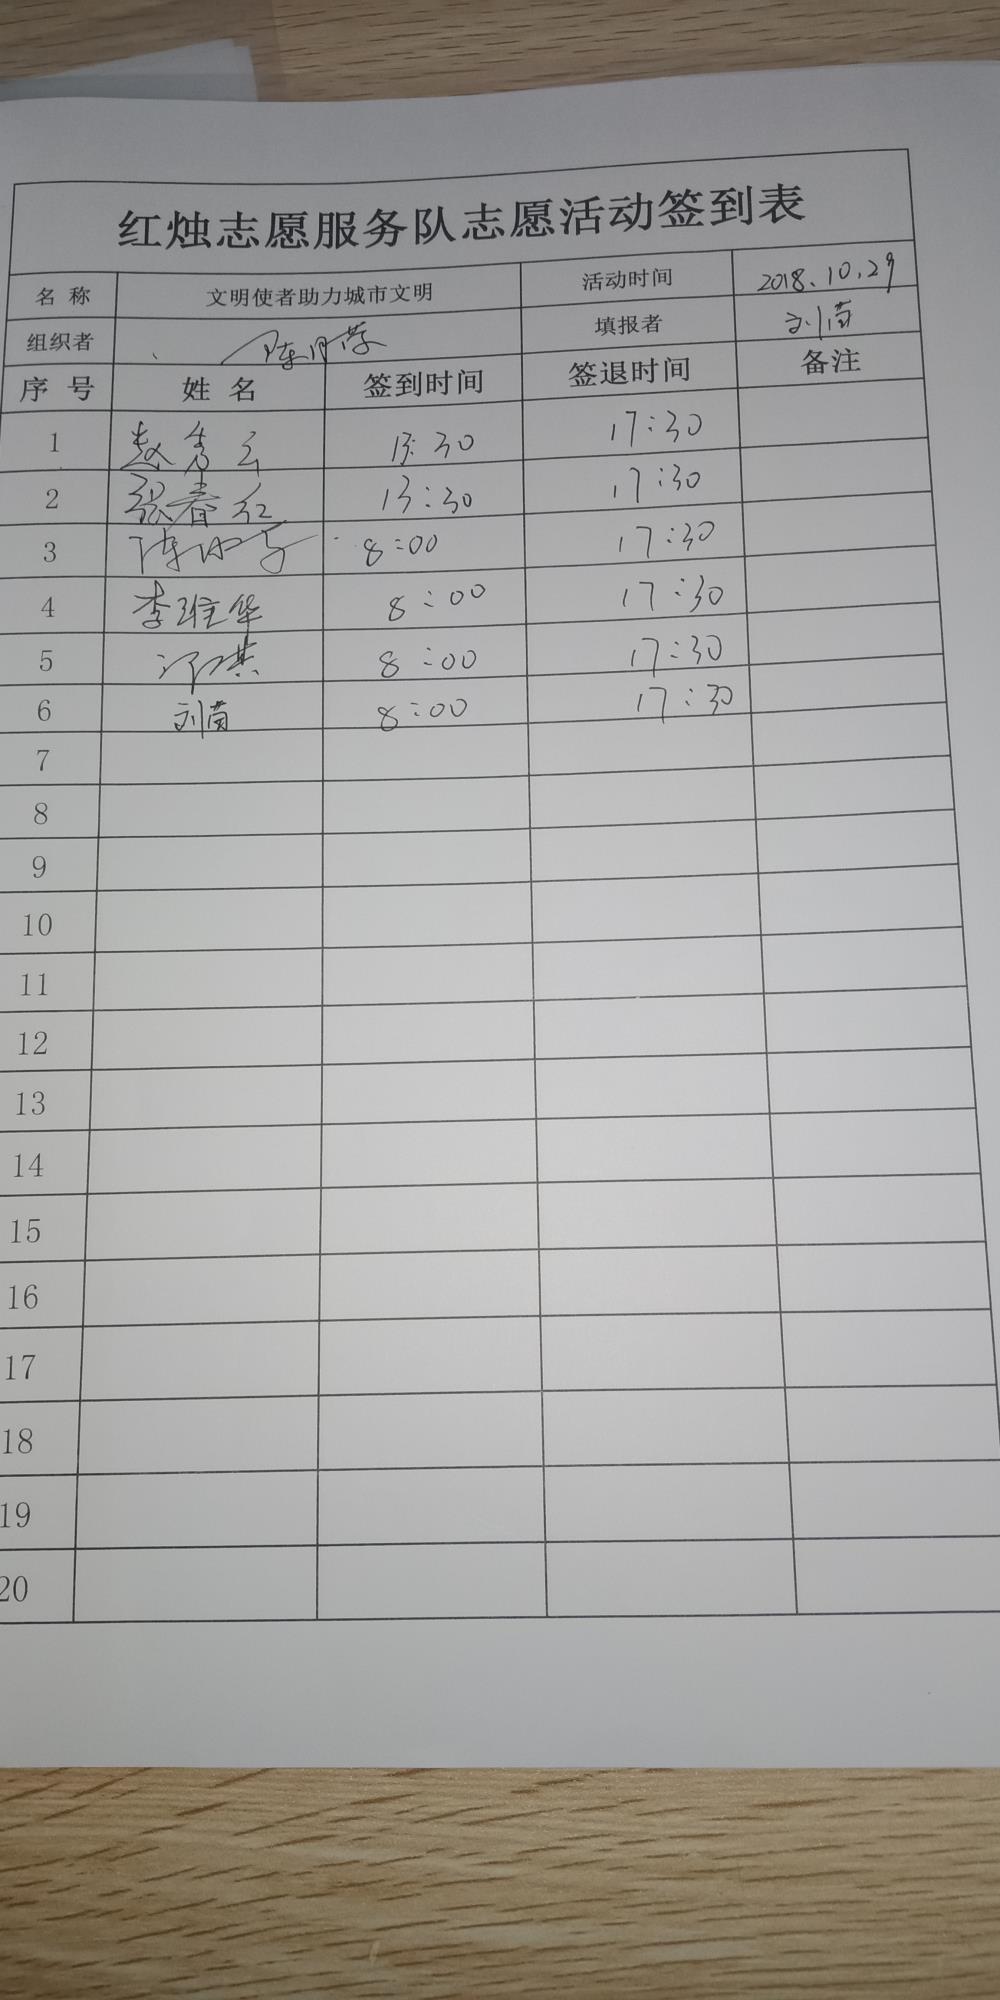 红烛志愿服务队志愿活动签到表
名 称 文明使者助力城市文明 活动时间 2018.10.29
组织者 陈月蓉 填报者 刘茵
序 号 姓 名 签到时间 签退时间 备注
1 赵秀云 13:30 17:30
2 张春红 13:30 17:30
3 8:00 17:30
4 李维华 8:00 17:30
5 8:00 17:30
6 刘茵 8:00 17:30
7
8
9
10
11
12
13
14
15
16
17
18
19
20